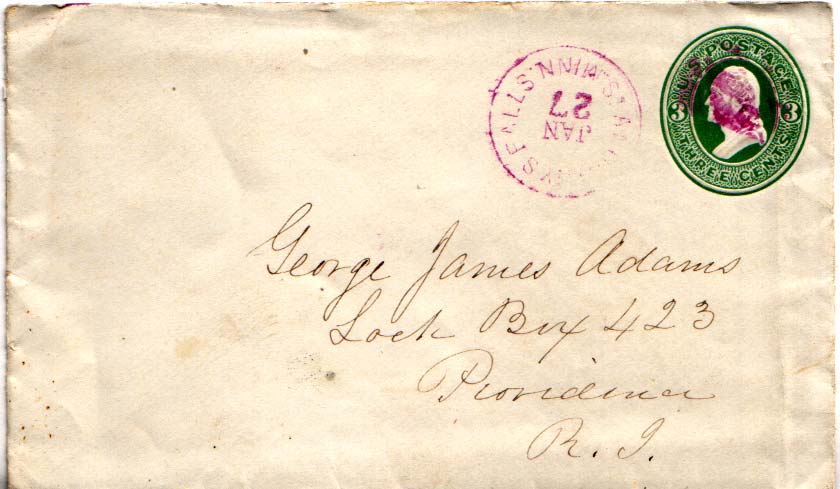 FALLS MINN.
JAN
27
U.S. POSTAGE
3 3
THREE CENTS
George James Adams
Lock Box 423
Providence
R. I.